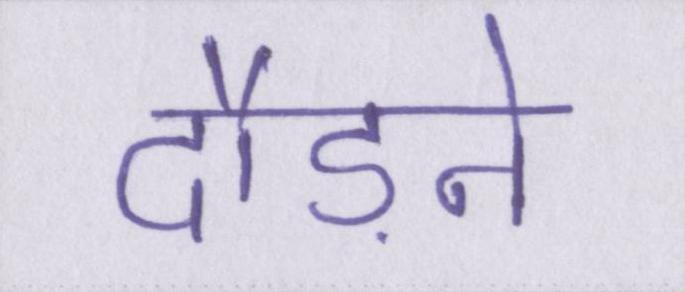 दौड़ने